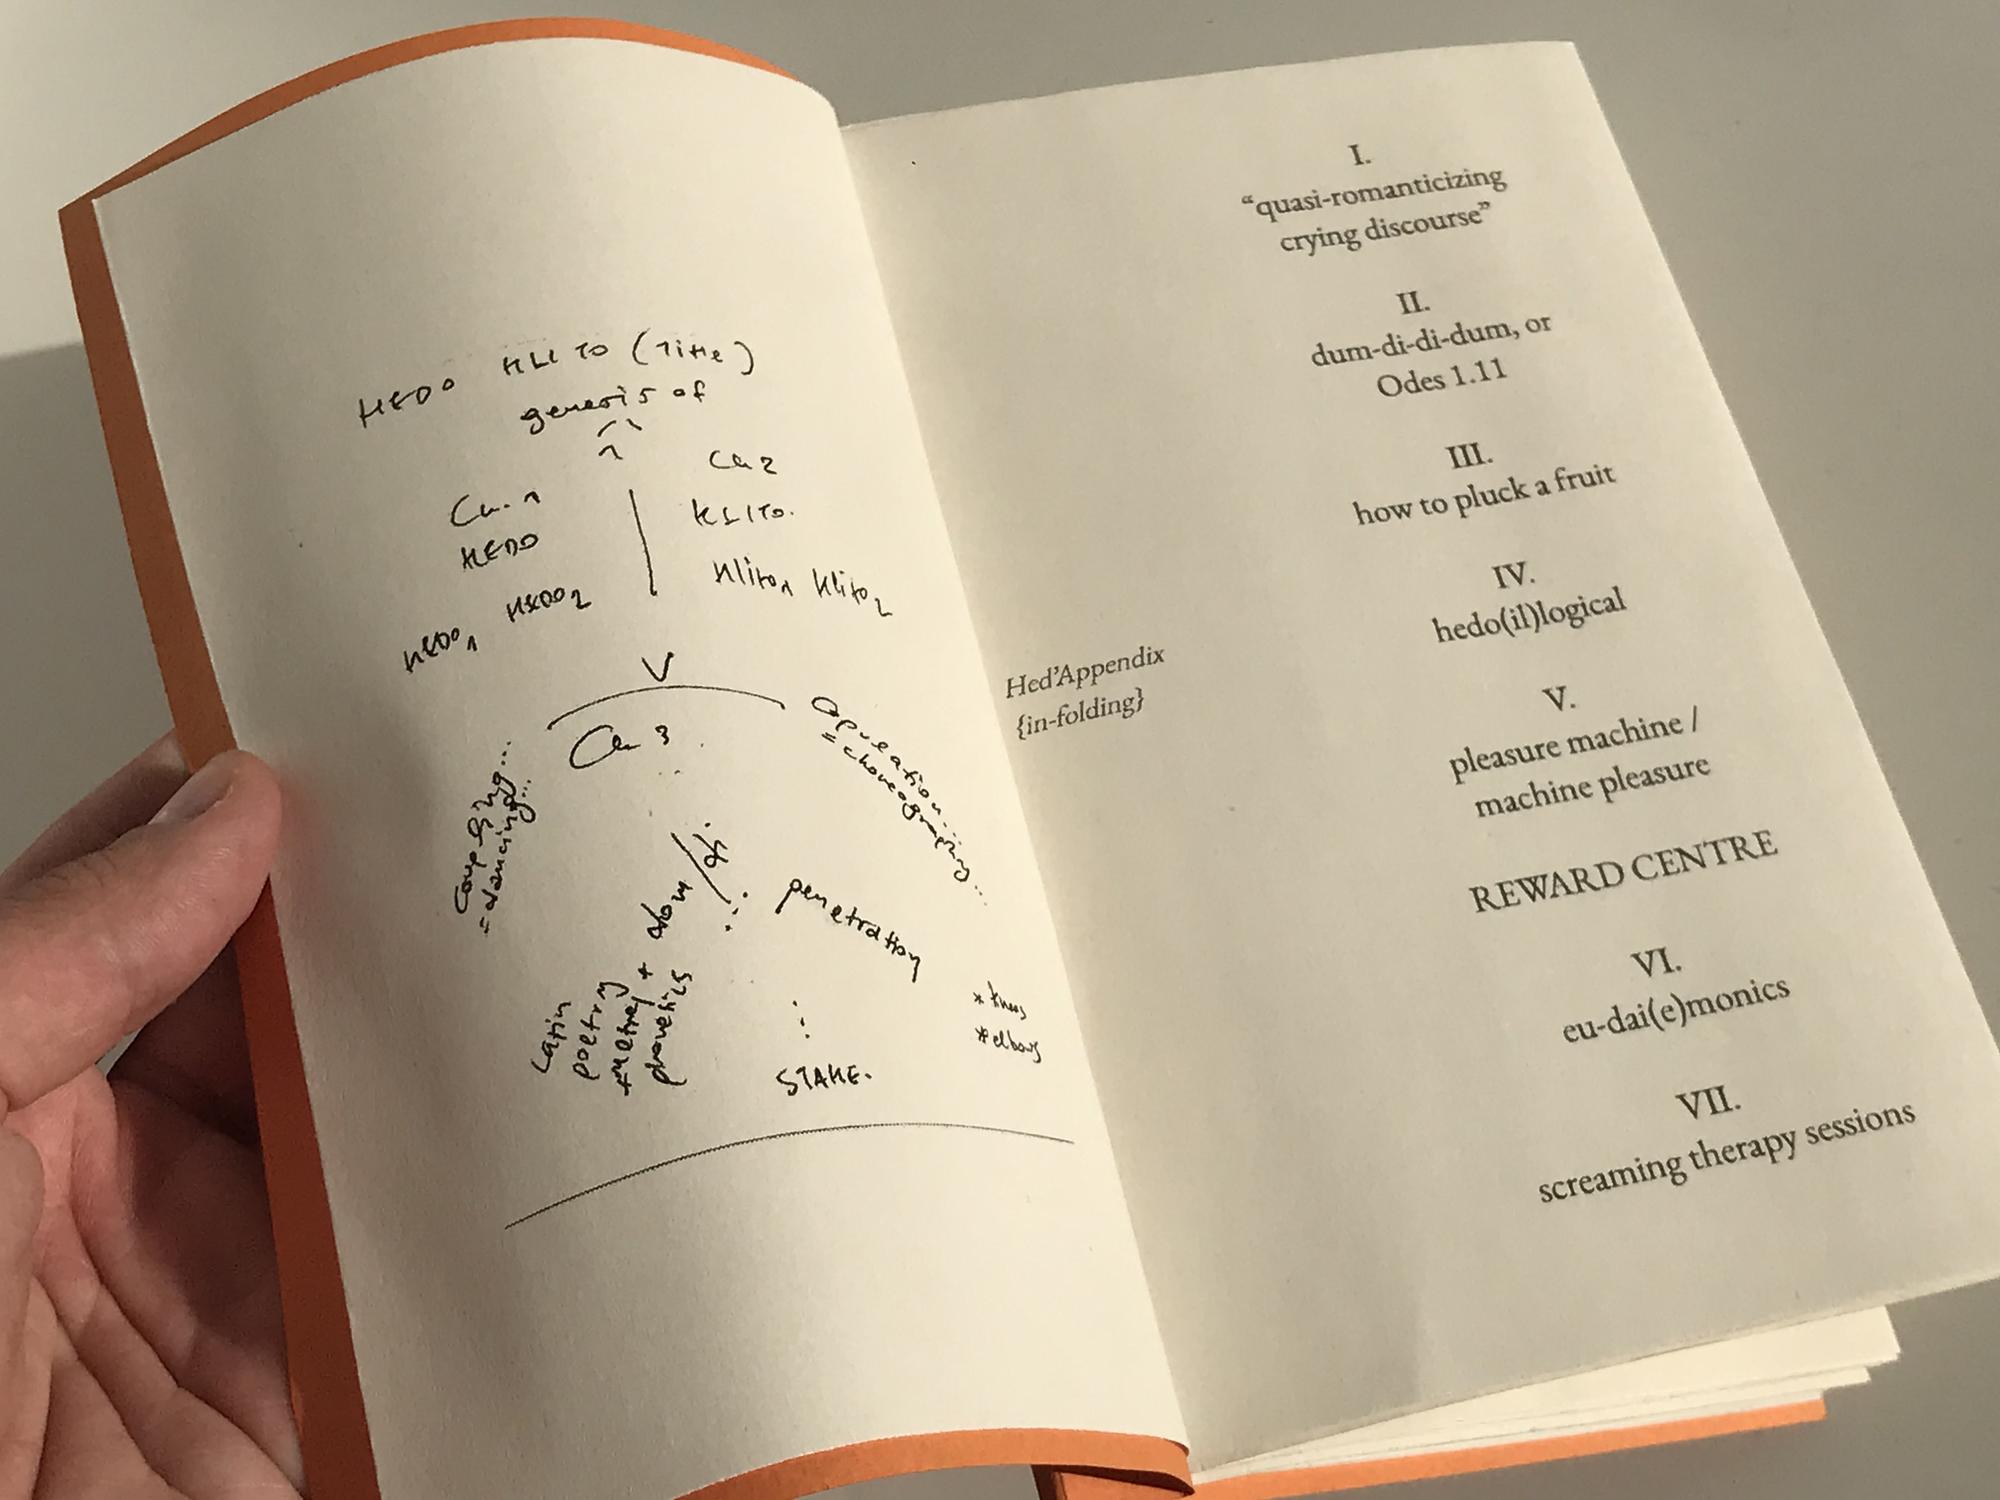 HEDO KLITO (Title)
genesis of
Ch. 1
HEDO
HEDO1 HEDO2
Ch 2
KLITO.
Klito1 Klito2
V
Ch 3
Coupling...
= dancing...
Copulation...
= choreographing...
Latin
poetry
+ metre/
phonetics
+ dum / di
penetration
STAKE.
* knees
* elbows
Hed'Appendix
{in-folding}
I.
“quasi-romanticizing
crying discourse”
II.
dum-di-di-dum, or
Odes 1.11
III.
how to pluck a fruit
IV.
hedo(il)logical
V.
pleasure machine /
machine pleasure
REWARD CENTRE
VI.
eu-dai(e)monics
VII.
screaming therapy sessions